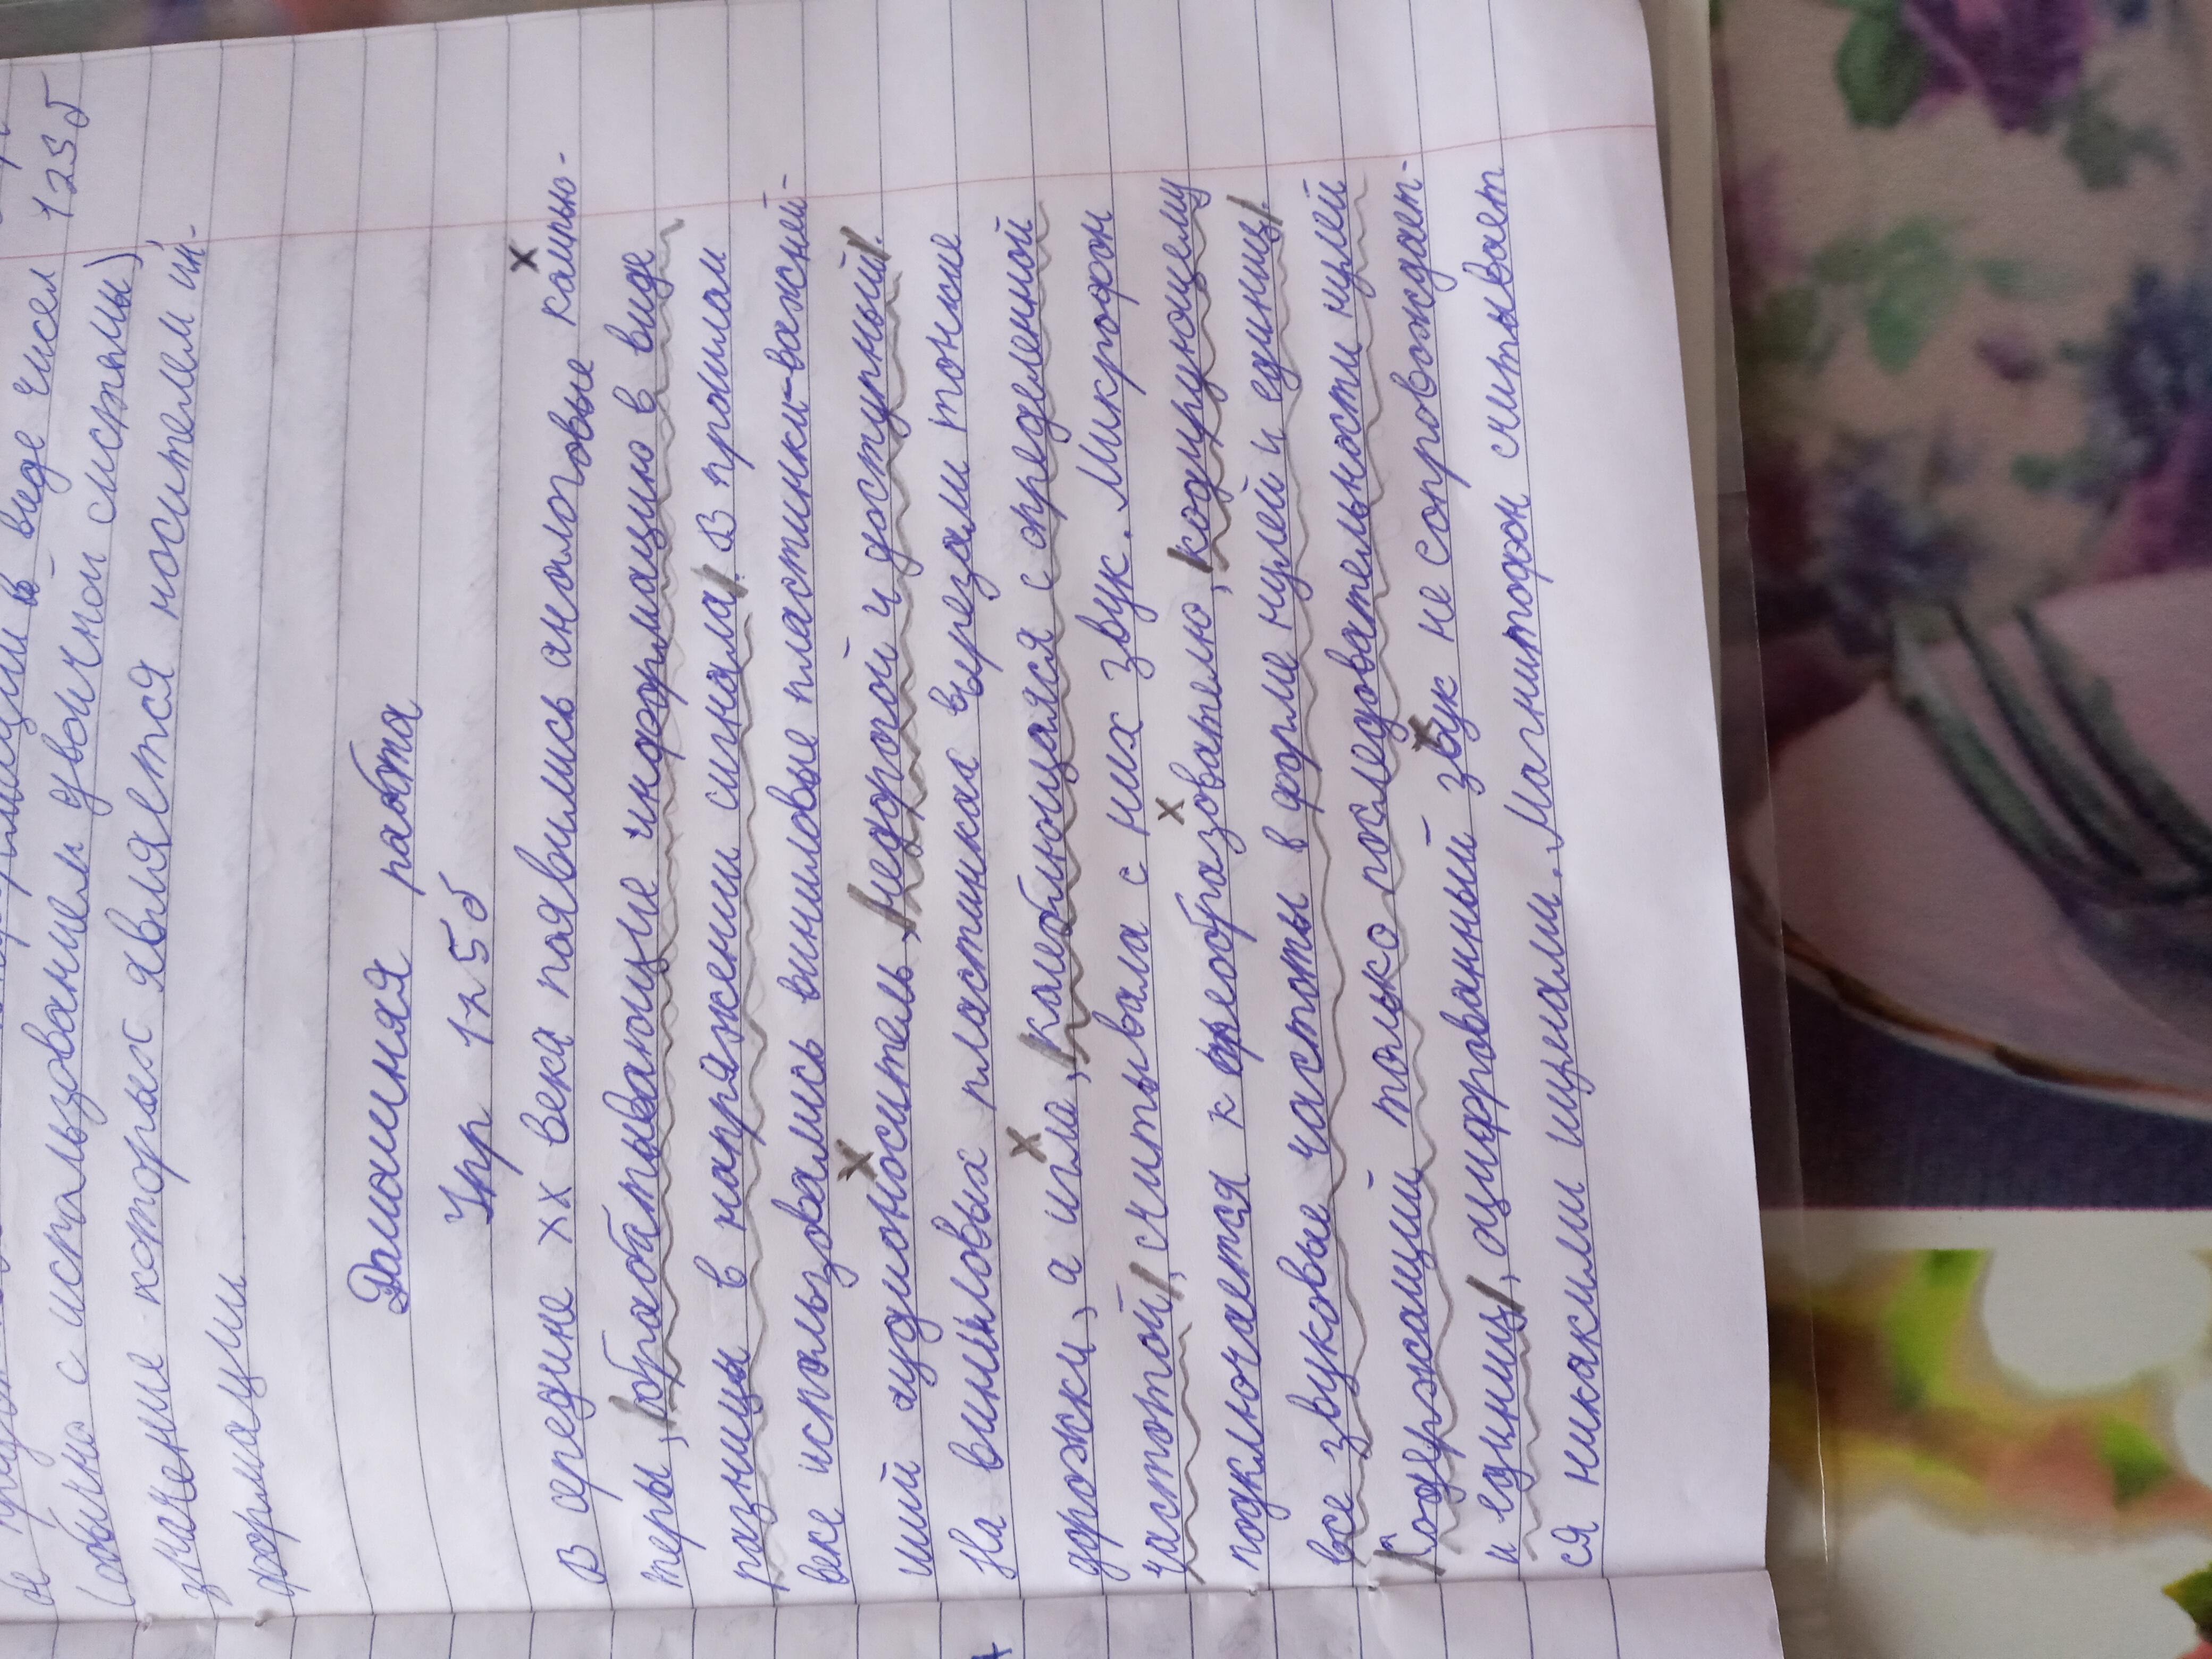 в виде чисел 125б
(обычно с использованием двоичной системы)
значение которых является носителем ин-
формации
Домашняя работа
Упр 125б
В середине XX века появились аналоговые компью-
теры, обрабатывающие информацию в виде
разницы в напряжении сигнала. В прошлом
веке использовались виниловые пластинки-важней-
ший аудионоситель, недорогой и доступный.
На виниловых пластинках вырезали тонкие
дорожки, а игла, колеблющаяся с определенной
частотой, считывала с них звук. Микрофон
подключается к преобразователю, кодирующему
все звуковые частоты в форме нулей и единиц.
Содержащий только последовательности нулей
и единиц, оцифрованный звук не сопровождает-
ся никакими шумами. Магнитофон считывает